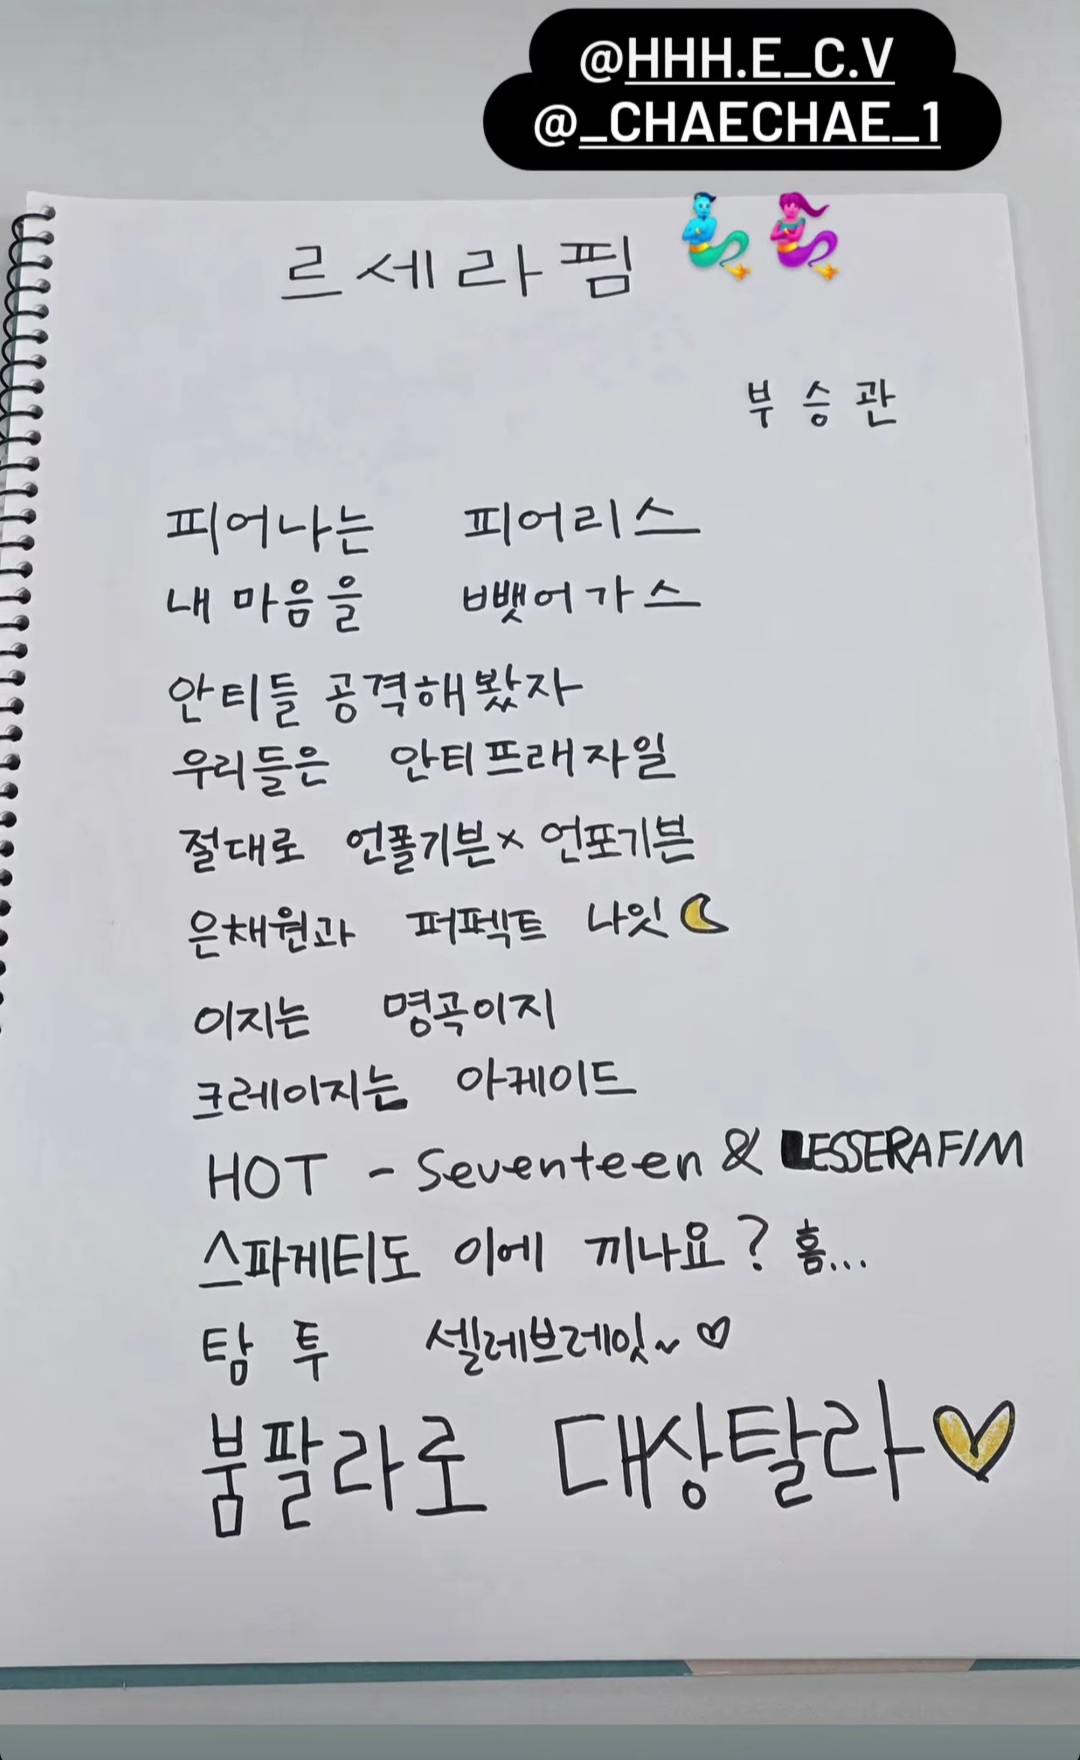 @HHH.E_C.V
@_CHAECHAE_1
르세라핌
부승관
피어나는 피어리스
내 마음을 뺏어가스
안티들 공격해봤자
우리들은 안티프래자일
절대로 언폴기븐x 언포기븐
은채원과 퍼펙트 나잇
이지는 명곡이지
크레이지는 아케이드
HOT - Seventeen & LESSERAFIM
스파게티도 이에 끼나요? 흠...
탐투 셀레브레잇~♡
붐팔라로 대상탈라